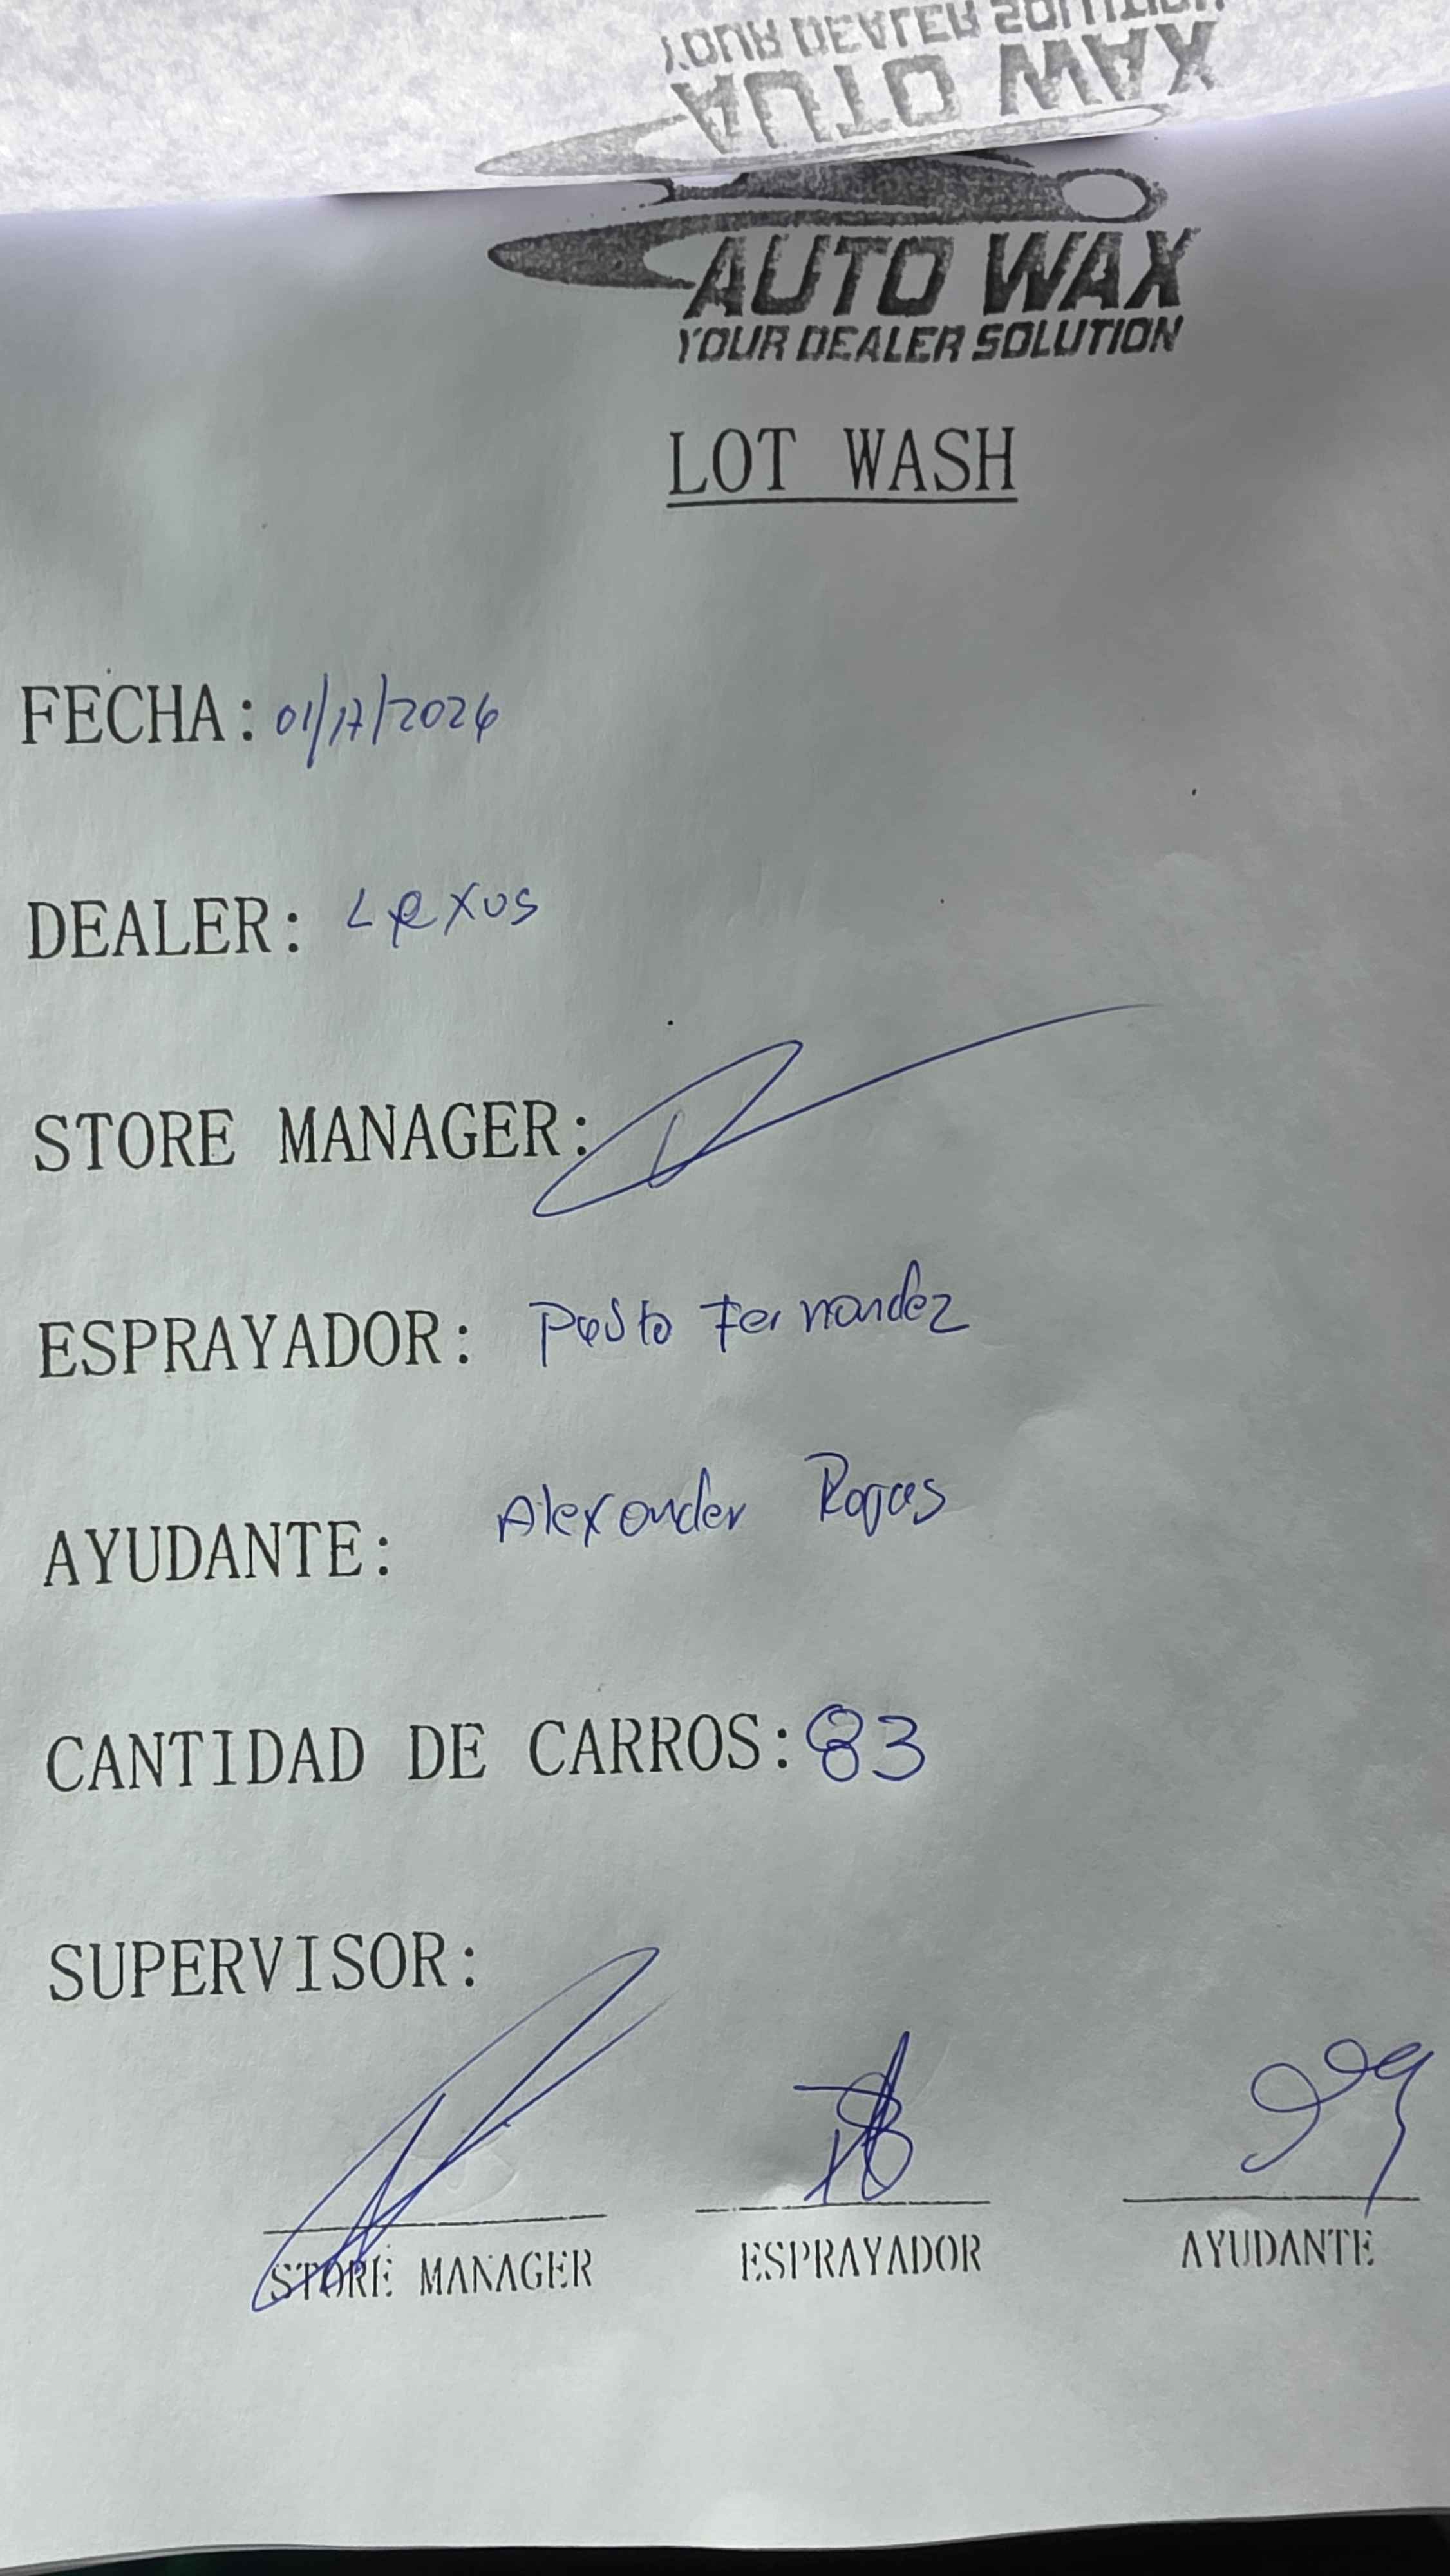 YOUR DEALER SOLUTION
AUTO WAX
AUTO WAX
YOUR DEALER SOLUTION
LOT WASH
FECHA: 01/17/2026
DEALER: Lexus
STORE MANAGER:
ESPRAYADOR: Fernandez
AYUDANTE: Alexander Rojas
CANTIDAD DE CARROS: 83
SUPERVISOR:
STORE MANAGER ESPRAYADOR AYUDANTE